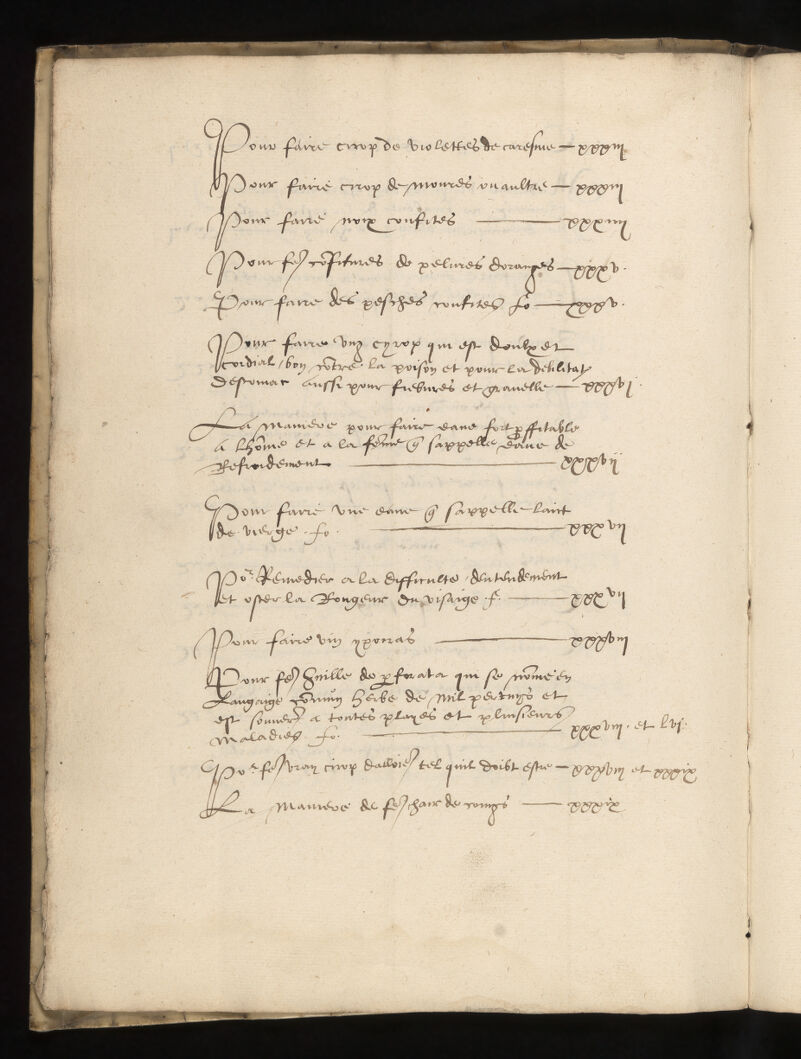 Pour faire cirop de violettes de caresme — xxxiij
Pour faire cirop de moures ou aultre — xxxiij
Pour faire noix confites — xxxiiij
Pour fe confitures de pelures doranges — xxxv.
Pour faire des pesches confites fo — xxxv.
Pour faire ung cyrop qui est doulx et
cordial, bon contre la poison et pour la debilitat
destomac aussi pour fiebvres et gravelle — xxxvj.
La maniere pour faire eaue fort pffitable
a lhome et a la feme q sappelle eaue de
Refroidement — xxxvij
Pour faire une eaue q sappelle laict
de vierge. fo. — xxxvij
Por Remedier a la difficulte dentendement
et oster la Rougeur du visaige. f. — xxxvij
Pour faire vin ypocras — xxxviij
Pour fe huille de pforata qui se nome en
Langaige comun herbe de mil pertuys et
est souver a toutes playes et plusieurs
maladies fo. — xxxviij. et lvj.
Por fe vray cirop tel quil doibt estre — xxxviij et xxxix
La maniere de fe chair de coings — xxxix